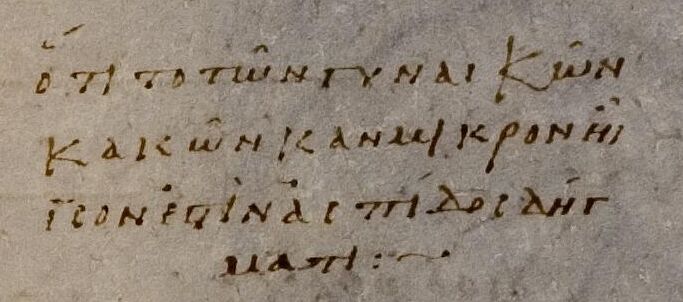 ὅτι το τῶν γυναικῶν
κακῶν κἀν μικρον ῆι
ἴσον ἐστὶν ἀσπίδος δήγ
ματι:~